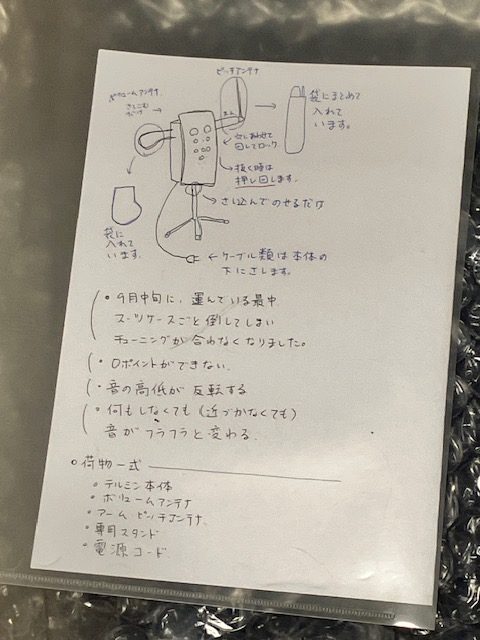 ピッチアンテナ
ボリュームアンテナ
さしこむ
だけ
袋にまとめて
入れて
います。
穴にあわせて
回してロック
抜く時は
押し回します。
さし込んでのせるだけ
袋に
入れて
います。
←ケーブル類は本体の
下にさします。
・9月中旬に、運んでいる最中
スーツケースごと倒してしまい
チューニングが合わなくなりました。
・0ポイントができない。
・音の高低が反転する
・何もしなくても(近づかなくても)
音がフラフラと変わる。
○荷物一式
・テルミン本体
・ボリュームアンテナ
・アーム・ピッチアンテナ
・専用スタンド
・電源コード